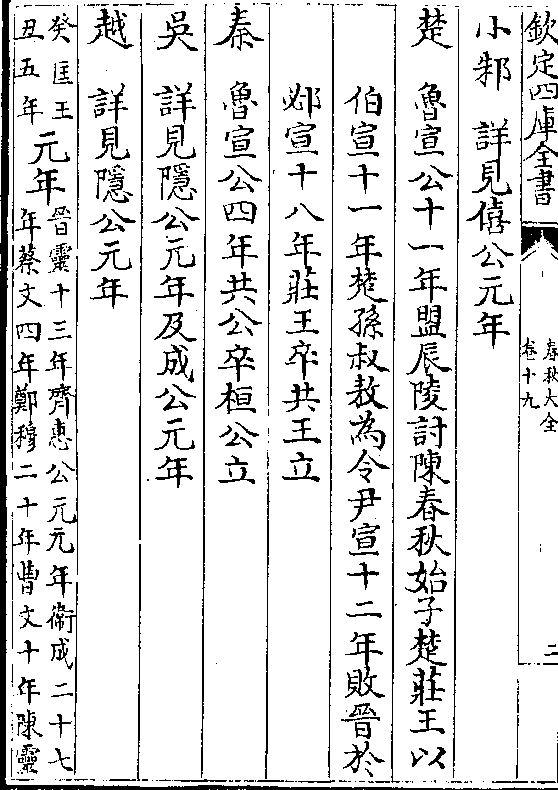 欽定四庫全書
春秋大全
卷十九
二
小邾 詳見僖公元年
楚 魯宣公十一年盟辰陵討陳春秋始子楚莊王以
伯宣十一年楚孫叔敖為令尹宣十二年敗晉於
邲宣十八年莊王卒共王立
秦 魯宣公四年共公卒桓公立
吳 詳見隱公元年及成公元年
越 詳見隱公元年
癸匡王
丑五年
元年
晉靈十三年齊惠公元元年衞成二十七
年蔡文四年鄭穆二十年曹文十年陳靈